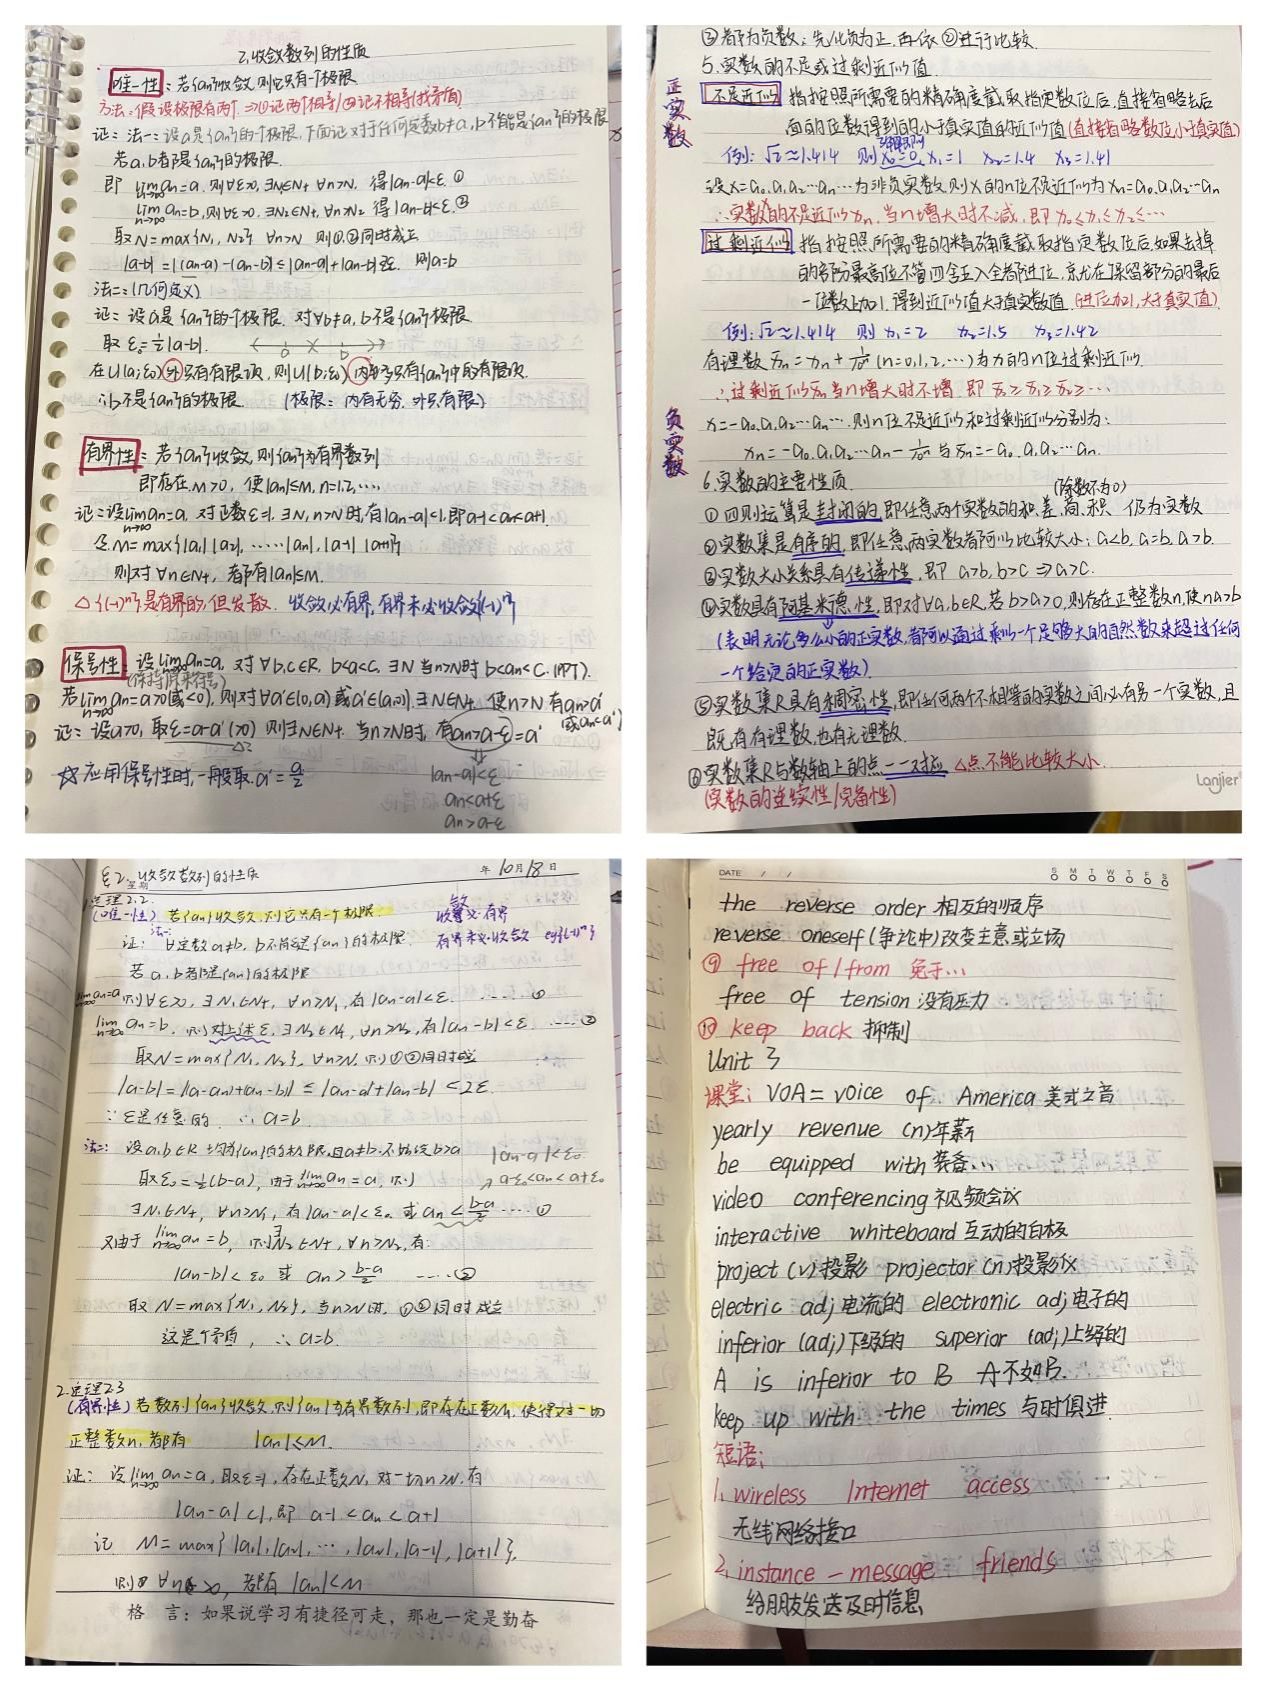 2.收敛数列的性质
唯一性:若{an}收敛,则它只有一个极限
方法:假设极限有两个⇒①证两个相等/②证不相等(找矛盾)
证:法一:设a是{an}的一个极限,下面证对于任何定数b≠a,b不能是{an}的极限
若a,b都是{an}的极限.
即 lim n→∞ an=a,则∀ε>0,∃N1∈N+ ∀n>N1 得|an-a|<ε.①
lim n→∞ an=b,则∀ε>0,∃N2∈N+,∀n>N2 得|an-b|<ε.②
取N=max{N1,N2} ∀n>N 则①②同时成立
|a-b|=|(an-a)-(an-b)|≤|an-a|+|an-b|<2ε. 则a=b
法二:(几何定义)
证:设a是{an}的一个极限.对∀b≠a,b不是{an}极限.
取ε0=½|a-b|.
在U(a;ε0)外只有有限项,则U(b;ε0)内至多只有{an}中的有限项.
∴b不是{an}的极限. (极限:内有无穷,外只有限)
有界性:若{an}收敛,则{an}为有界数列
即存在M>0,使|an|≤M,n=1,2,….
证:设lim n→∞ an=a,对正数ε=1,∃N,n>N时,有|an-a|<1,即a-1<an<a+1
令M=max{|a1|,|a2|,……|an|,|a-1|,|a+1|}
则对∀n∈N+,都有|an|≤M.
△{(-1)^n}是有界的,但发散. 收敛必有界,有界未必收敛{(-1)^n}
保号性:设lim n→∞ an=a,对∀b,c∈R,b<a<c,∃N 当n>N时b<an<c.(PPT).
(保持原来符号)
若lim n→∞ an=a>0(或<0),则对∀a'∈(0,a)或a'∈(a,0),∃N∈N+,使n>N有an>a'
(或an<a')
证:设a>0,取ε=a-a'(>0) 则∃N∈N+.当n>N时,有an>a-ε=a'
☆应用保号性时,一般取a'=a/2
|an-a|<ε
an<a+ε
an>a-ε
③都为负数:先化负为正,再依②进行比较.
5.实数的不足或过剩近似值.
正实数
不足近似 指按照所需要的精确度截取指定数位后,直接省略去后
面的位数得到的小于真实值的近似值(直接省略数位小于真实值)
例:√2≈1.414 则x0=0,x1=1 x2=1.4 x3=1.41
设x=a0.a1a2…an…为非负实数,则x的n位不足近似为xn=a0.a1a2…an
∴实数的不足近似xn,当n增大时不减,即x0≤x1≤x2≤…
过剩近似 指按照所需要的精确度截取指定数位后,如果去掉
的部分最高位不管四舍五入全都进位,京尤在保留部分的最后
一位数上加1,得到近似值大于真实数值.(进位加1,大于真实值)
例:√2≈1.414 则x1=2 x2=1.5 x3=1.42
有理数x̄n=xn+1/10^n(n=0,1,2,…)为x的n位过剩近似.
∴过剩近似x̄n当n增大时不增,即x̄0≥x̄1≥x̄2≥…
负实数
x=-a0.a1a2…an….则n位不足近似和过剩近似分别为:
xn=-a0.a1a2…an-1/10^n与x̄n=-a0.a1a2…an.
6.实数的主要性质
(除数不为0)
①四则运算是封闭的,即任意两个实数的和、差、商、积 仍为实数
②实数集是有序的,即任意两实数都可以比较大小:a<b,a=b,a>b.
③实数大小关系具有传递性,即 a>b,b>c⇒a>c.
④实数具有阿基米德性,即对∀a,b∈R,若b>a>0,则存在正整数n,使na>b
(表明无论多么小的正实数,都可以通过乘以一个足够大的自然数来超过任何
一个给定的正实数)
⑤实数集R具有稠密性,即任何两个不相等的实数之间必有另一个实数,且
既有有理数,也有无理数.
⑥实数集R与数轴上的点一一对应 △点不能比较大小.
(实数的连续性/完备性)
Lanjier
§2.收敛数列的性质
星期 年 10月18日
1.定理2.2.
(唯一性) 若{an}收敛,则它只有一个极限.
收敛必有界
有界未必收敛 eg{(-1)^n}
法一:
证:∀定数a≠b,b不能是{an}的极限.
若a,b都是{an}的极限
lim n→∞ an=a 则∀ε>0,∃N1∈N+,∀n>N1,有|an-a|<ε. ……①
lim n→∞ an=b,则对上述ε,∃N2∈N+,∀n>N2,有|an-b|<ε ……②
取N=max{N1,N2},∀n>N,则①②同时成立
|a-b|=|(a-an)+(an-b)|≤|an-a|+|an-b|<2ε.
∵ε是任意的,∴a=b
法二:设a,b∈R均为{an}的极限,且a≠b.不妨设b>a
|an-a|<ε0.
a-ε0<an<a+ε0
取ε0=½(b-a),由于lim n→∞ an=a,则
∃N1∈N+,∀n>N1,有|an-a|<ε0 或an<(b-a)/2 ……①
又由于lim n→∞ an=b,则∃N2∈N+,∀n>N2,有:
|an-b|<ε0 或 an>(b-a)/2 ……②
取N=max{N1,N2},当n>N时,①②同时成立
这是个矛盾,∴a=b.
2.定理2.3
(有界性) 若数列{an}收敛,则{an}为有界数列,即存在正数M,使得对一切
正整数n,都有 |an|≤M.
证:设lim n→∞ an=a,取ε=1,存在正数N,对一切n>N,有
|an-a|<1,即 a-1<an<a+1
记 M=max{|a1|,|a2|,…,|aN|,|a-1|,|a+1|},
则 ∀n>0,都有|an|<M
格 言:如果说学习有捷径可走,那也一定是勤奋
DATE / / S M T W T F S
the reverse order 相互的顺序
reverse oneself(争论中)改变主意或立场
⑨ free of/from 免于…
free of tension 没有压力
⑩ keep back 抑制
Unit 3
课堂:VOA=voice of America 美式之音
yearly revenue (n)年薪
be equipped with 装备…
video conferencing 视频会议
interactive whiteboard 互动的白板
project (v)投影 projector (n)投影仪
electric adj 电流的 electronic adj 电子的
inferior (adj)下级的 superior (adj)上级的
A is inferior to B A不如B.
keep up with the times 与时俱进.
短语:
1.wireless Internet access
无线网络接口
2.instance-message friends
给朋友发送及时信息